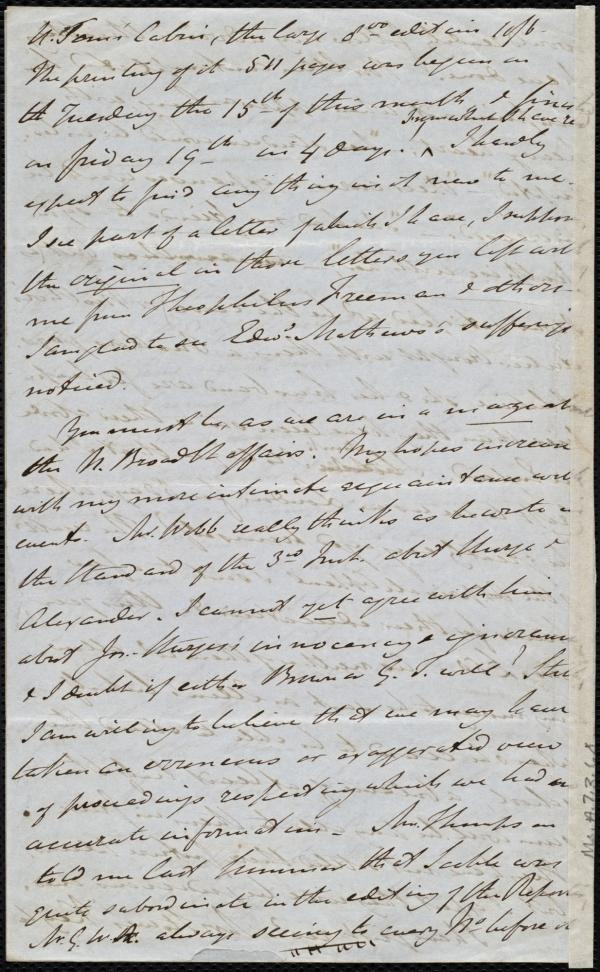 U. Tom's Cabin, the large 8vo edition 10/6
The printing of it 511 pages was begun on
th Tuesday the 15th of this month &
on friday 19th in 4 days. I hardly
expect to find any thing in it new to me.
I see part of a letter which I have, I suppose
the original in those letters you left with
me from Theophilus Freeman & others.
I am glad to see Edwd. Mathews's sufferings
noticed.
You must be, as we are in a maze abt
the N. Broad St affairs. My hopes increase
with my more intimate acquaintance with
events. Mr. Webb really thinks as he wrote in
the Standard of the 3rd Inst. abot Sturge &
Alexander. I cannot yet agree with him
about Jos. Sturge's innocency & ignorance
& I doubt if either Brown or G. T. will! Still
I am willing to believe that we may have
taken an erroneous or exaggerated view
of proceedings respecting which we had no
accurate information - Mr. Thompson
told me last Summer that Scoble was
quite subordinate in the editing of the Reporter
Mr. G. W. A. always seeing to every No before it
Ms. A.7.3.6.8